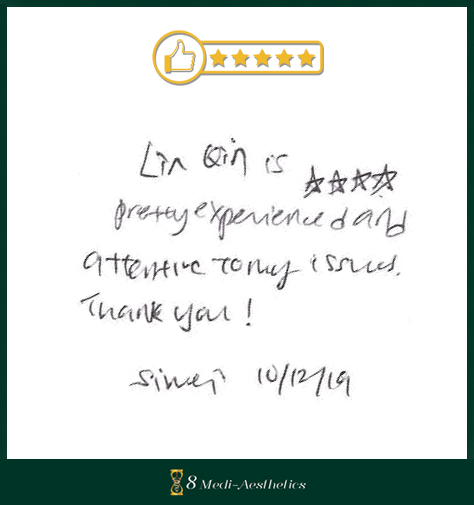 Lin Qin is
pretty experienced and
attentive to my issues.
Thank you!
Siwei 10/12/19
8 Medi-Aesthetics